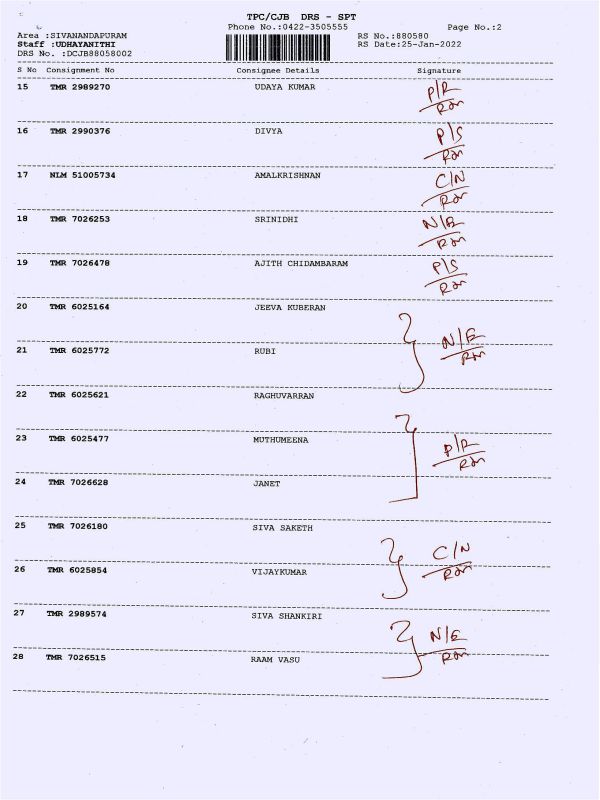 TPC/CJB DRS - SPT
Phone No.:0422-3505555 Page No.:2
Area :SIVANANDAPURAM RS No.:880580
Staff :UDHAYANITHI RS Date:25-Jan-2022
DRS No. :DCJB88058002
S No Consignment No Consignee Details Signature
15 TMR 2989270 UDAYA KUMAR P/R
16 TMR 2990376 DIVYA P/S
17 NLM 51005734 AMALKRISHNAN C/N
18 TMR 7026253 SRINIDHI N/E
19 TMR 7026478 AJITH CHIDAMBARAM P/S
20 TMR 6025164 JEEVA KUBERAN
N/E
21 TMR 6025772 RUBI
22 TMR 6025621 RAGHUVARRAN
23 TMR 6025477 MUTHUMEENA P/R
24 TMR 7026628 JANET
25 TMR 7026180 SIVA SAKETH
C/N
26 TMR 6025854 VIJAYKUMAR
27 TMR 2989574 SIVA SHANKIRI
N/E
28 TMR 7026515 RAAM VASU